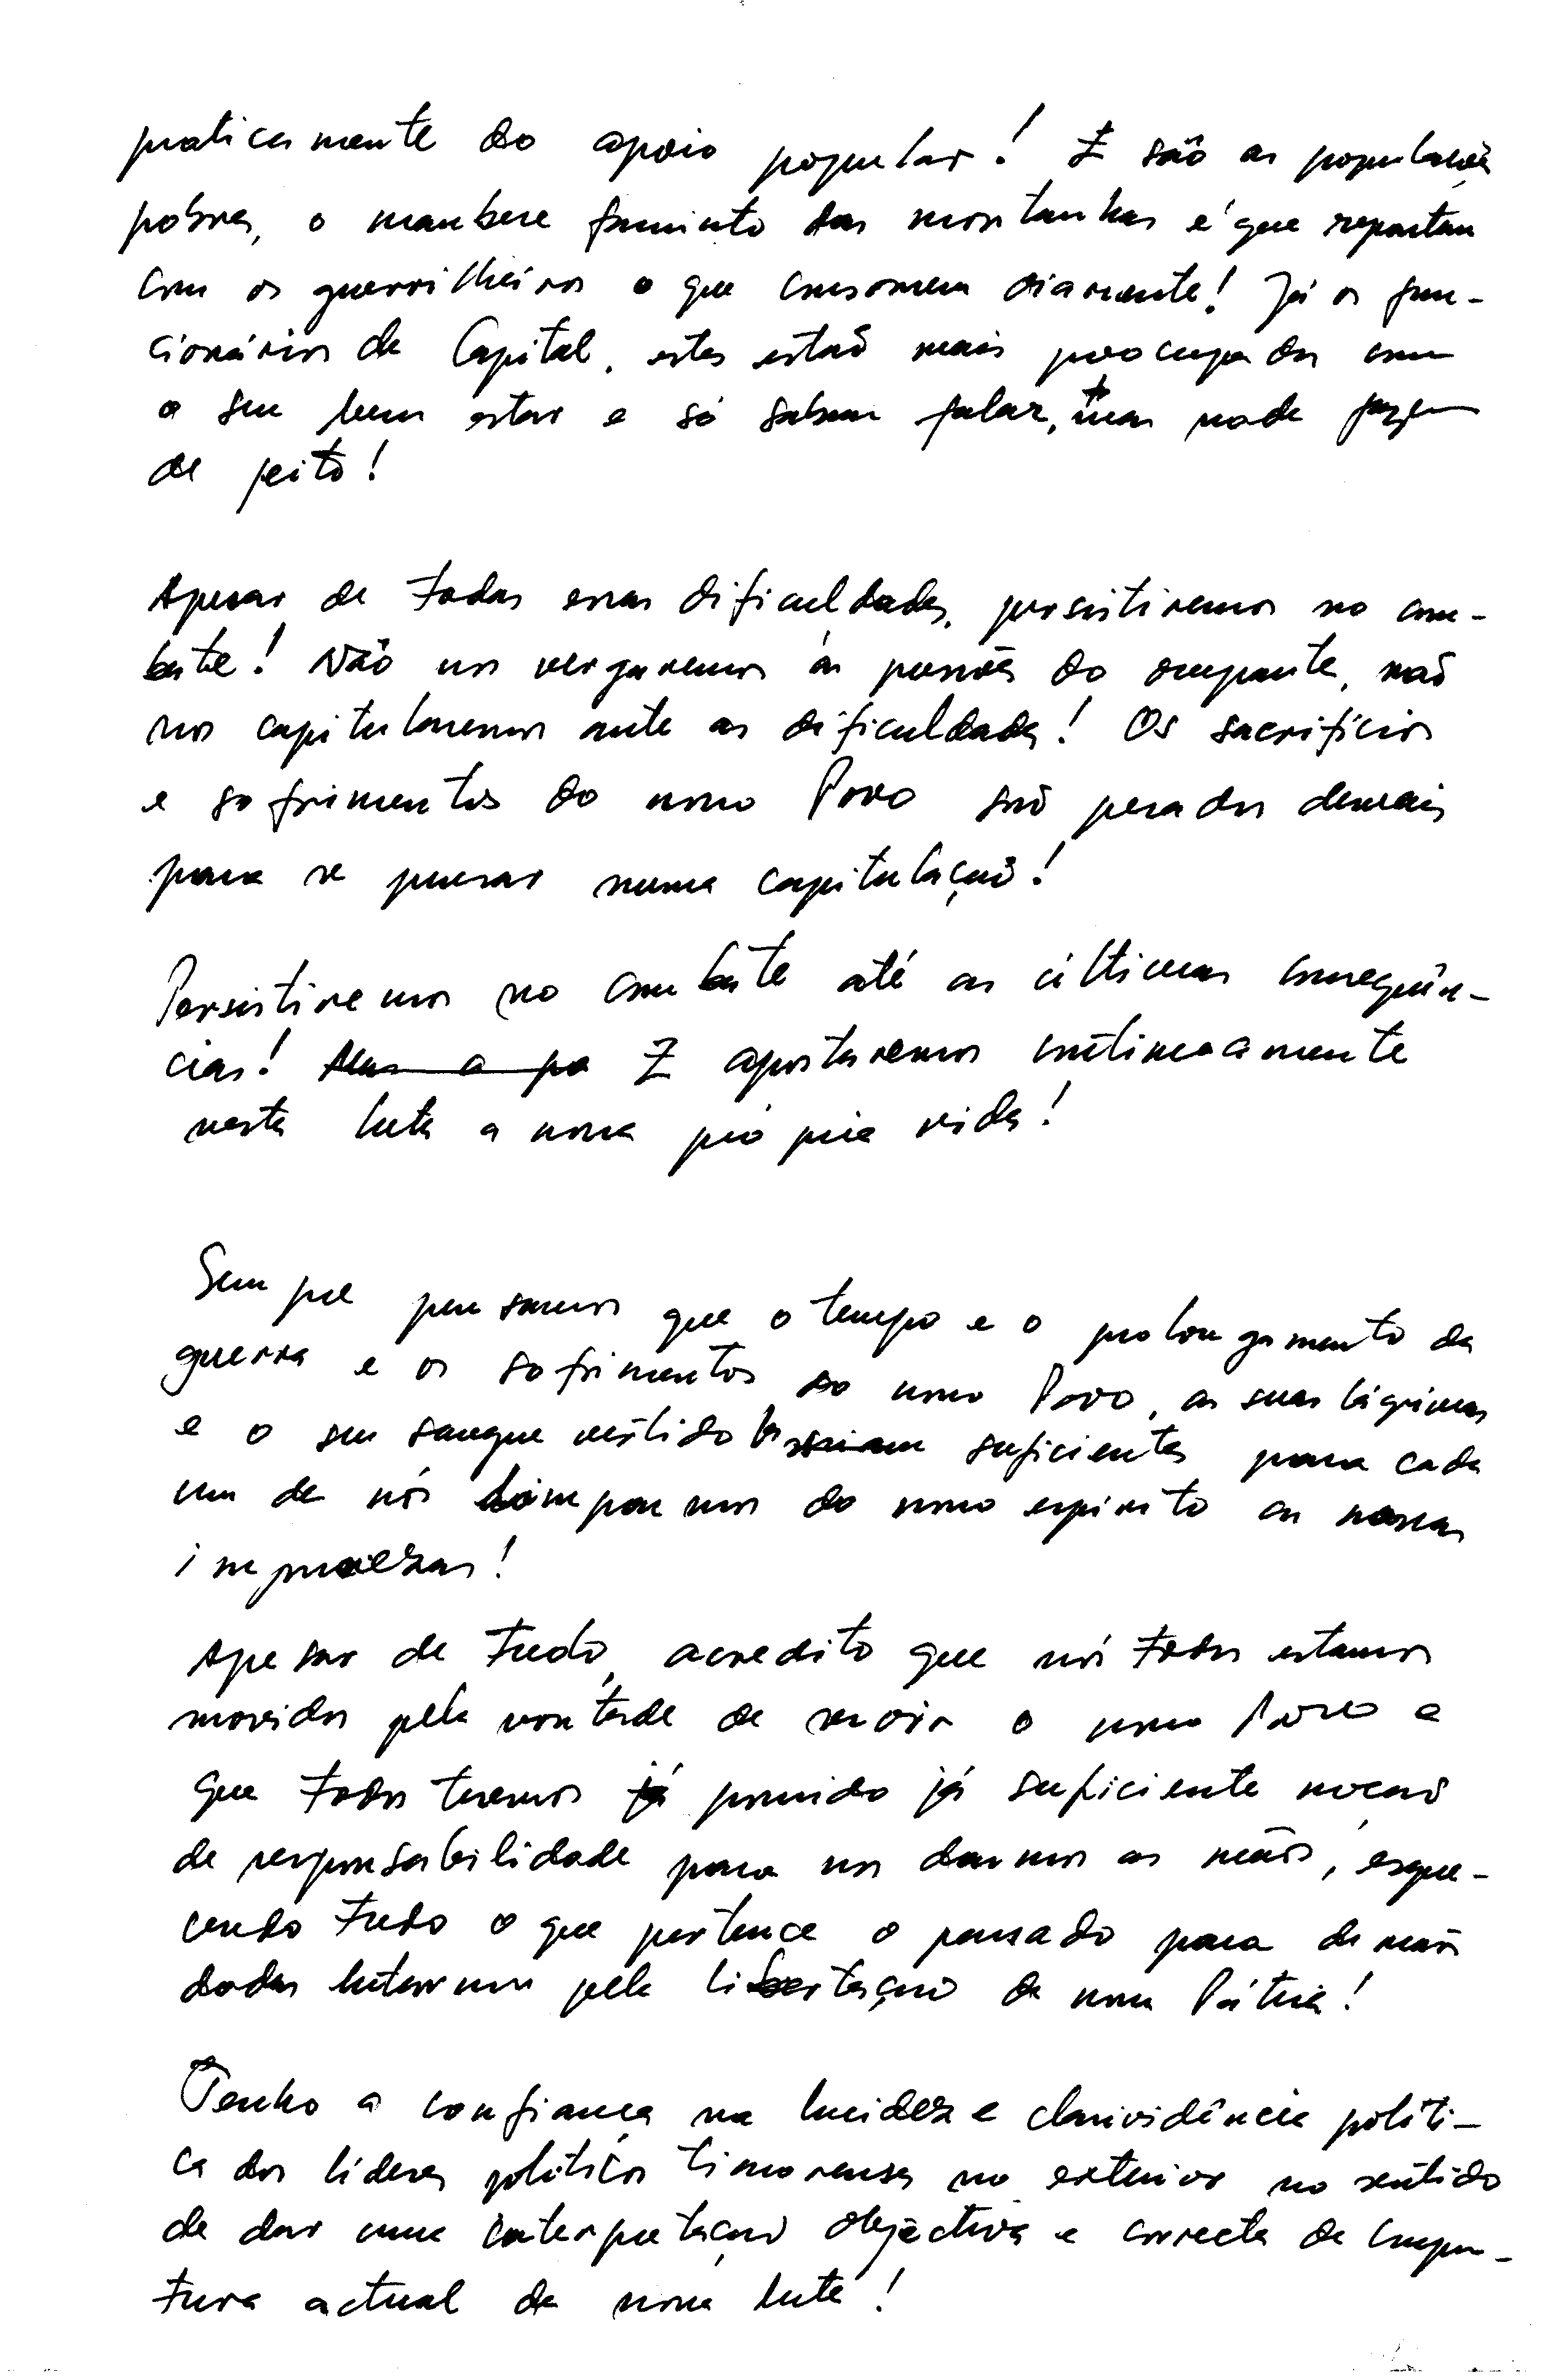 praticamente do apoio popular! E são as populações
pobres, o maubere faminto das montanhas é que repartem
com os guerrilheiros o que consomem diariamente! Já os fun-
cionários da Capital, estes estão mais preocupados com
o seu bem estar e só sabem falar, mas nada fazem
de jeito!
Apesar de todas essas dificuldades, persistiremos no com-
bate! Não nos vergaremos às pressões do ocupante, não
nos capitularemos ante as dificuldades! Os sacrifícios
e sofrimentos do nosso Povo são pesados demais
para se pensar numa capitulação!
Persistiremos no combate até as últimas consequên-
cias! E apostaremos contínuamente
nesta luta a nossa própria vida!
Sempre pensamos que o tempo e o prolongamento da
guerra e os sofrimentos do nosso Povo, as suas lágrimas
e o seu sangue vertido suficientes para cada
um de nós limparmos do nosso espírito as nossas
impurezas!
Apesar de tudo, acredito que nós todos estamos
movidos pela vontade de servir o nosso Povo e
que todos teremos já possuido já suficiente noção
de responsabilidade para nos darmos as mãos, esque-
cendo tudo o que pertence o passado para de mãos
dadas lutarmos pela libertação da nossa Pátria!
Tenho a confiança na lucidez e clarividência políti-
ca dos líderes políticos timorenses no exterior no sentido
de dar uma interpretação objectiva e correcta da conjun-
tura actual da nossa luta!